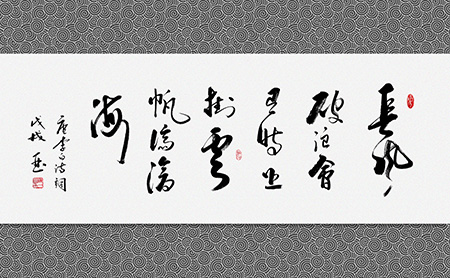 長風
破浪會
有時直
掛雲
帆濟滄
海
唐李白詩詞
戊戌